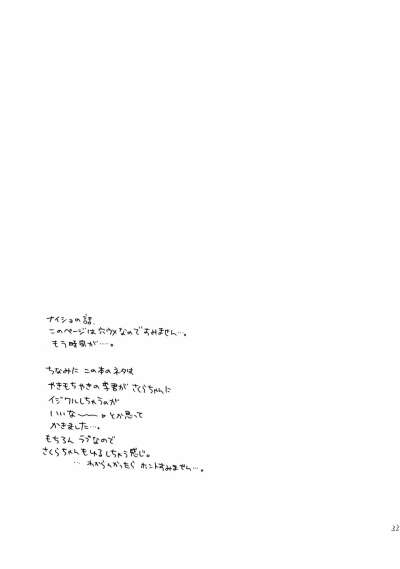 ナイショの話、
このページは穴ウメなのですみません…。
もう時間が…。
ちなみに この本のネタは
やきもちやきの李君が さくらちゃんに
イジワルしちゃうのが
いいな〜〜 とか思って
かきました…。
もちろん ラブなので
さくらちゃんもゆるしちゃう感じ。
… わからんかったら ホントすみません…。
33